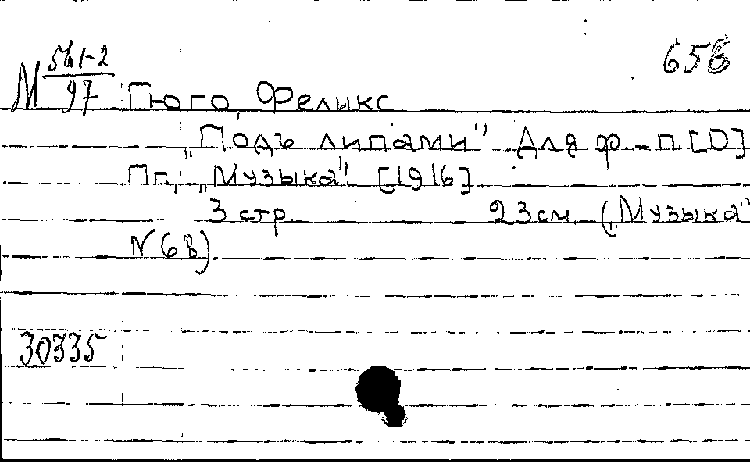 М 561-2/97
658
Гюго, Феликс
„Подъ липами" Для ф-п [D]
Пг, „Музыка" [1916]
3 стр 23 см („Музыка"
N 68)
30335